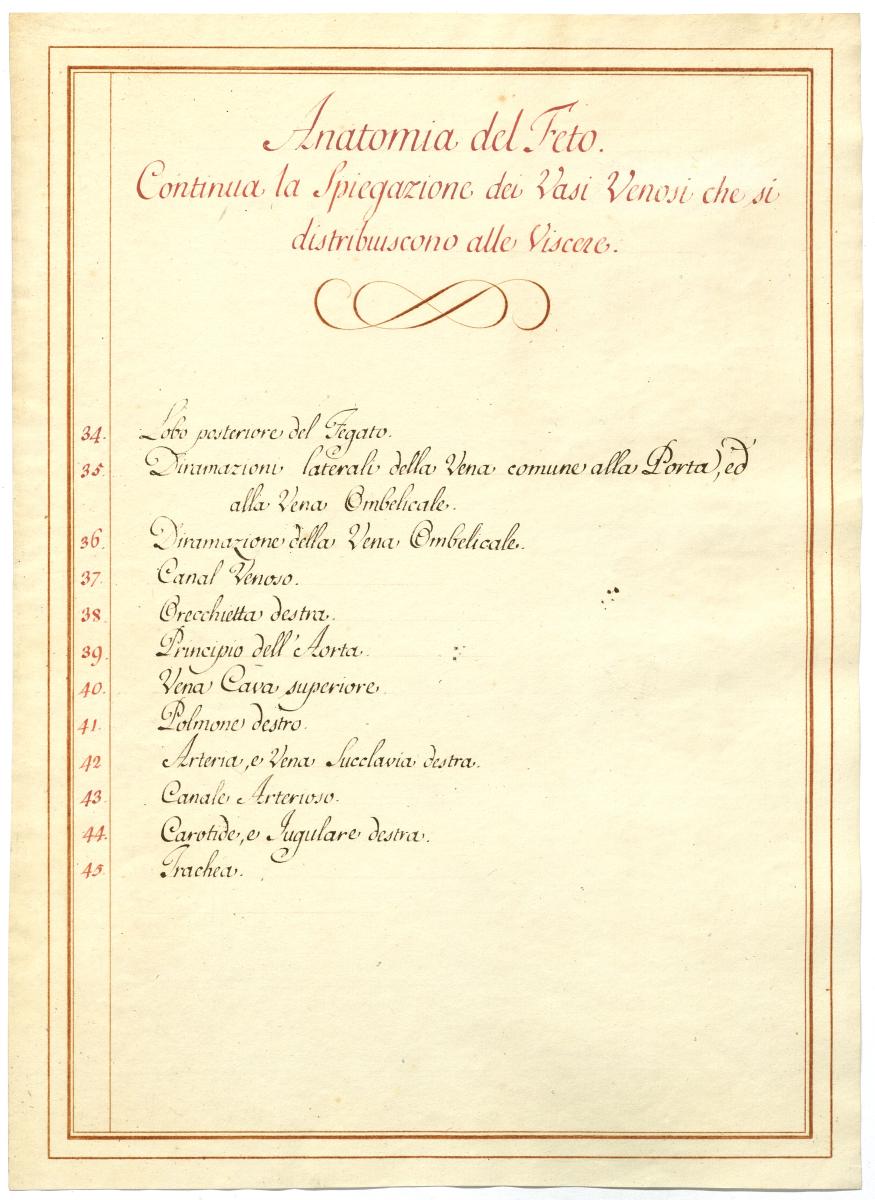 Anatomia del Feto.
Continua la Spiegazione dei Vasi Venosi che si
distribuiscono alle Viscere.
34. Lobo posteriore del Fegato.
35. Diramazioni laterali della Vena comune alla Porta, ed
alla Vena Ombelicale.
36. Diramazione della Vena Ombelicale.
37. Canal Venoso.
38. Orecchietta destra.
39. Principio dell'Aorta.
40. Vena Cava superiore
41. Polmone destro.
42 Arteria, e Vena Succlavia destra.
43 Canale Arterioso.
44. Carotide, e Jugulare destra.
45. Trachea.